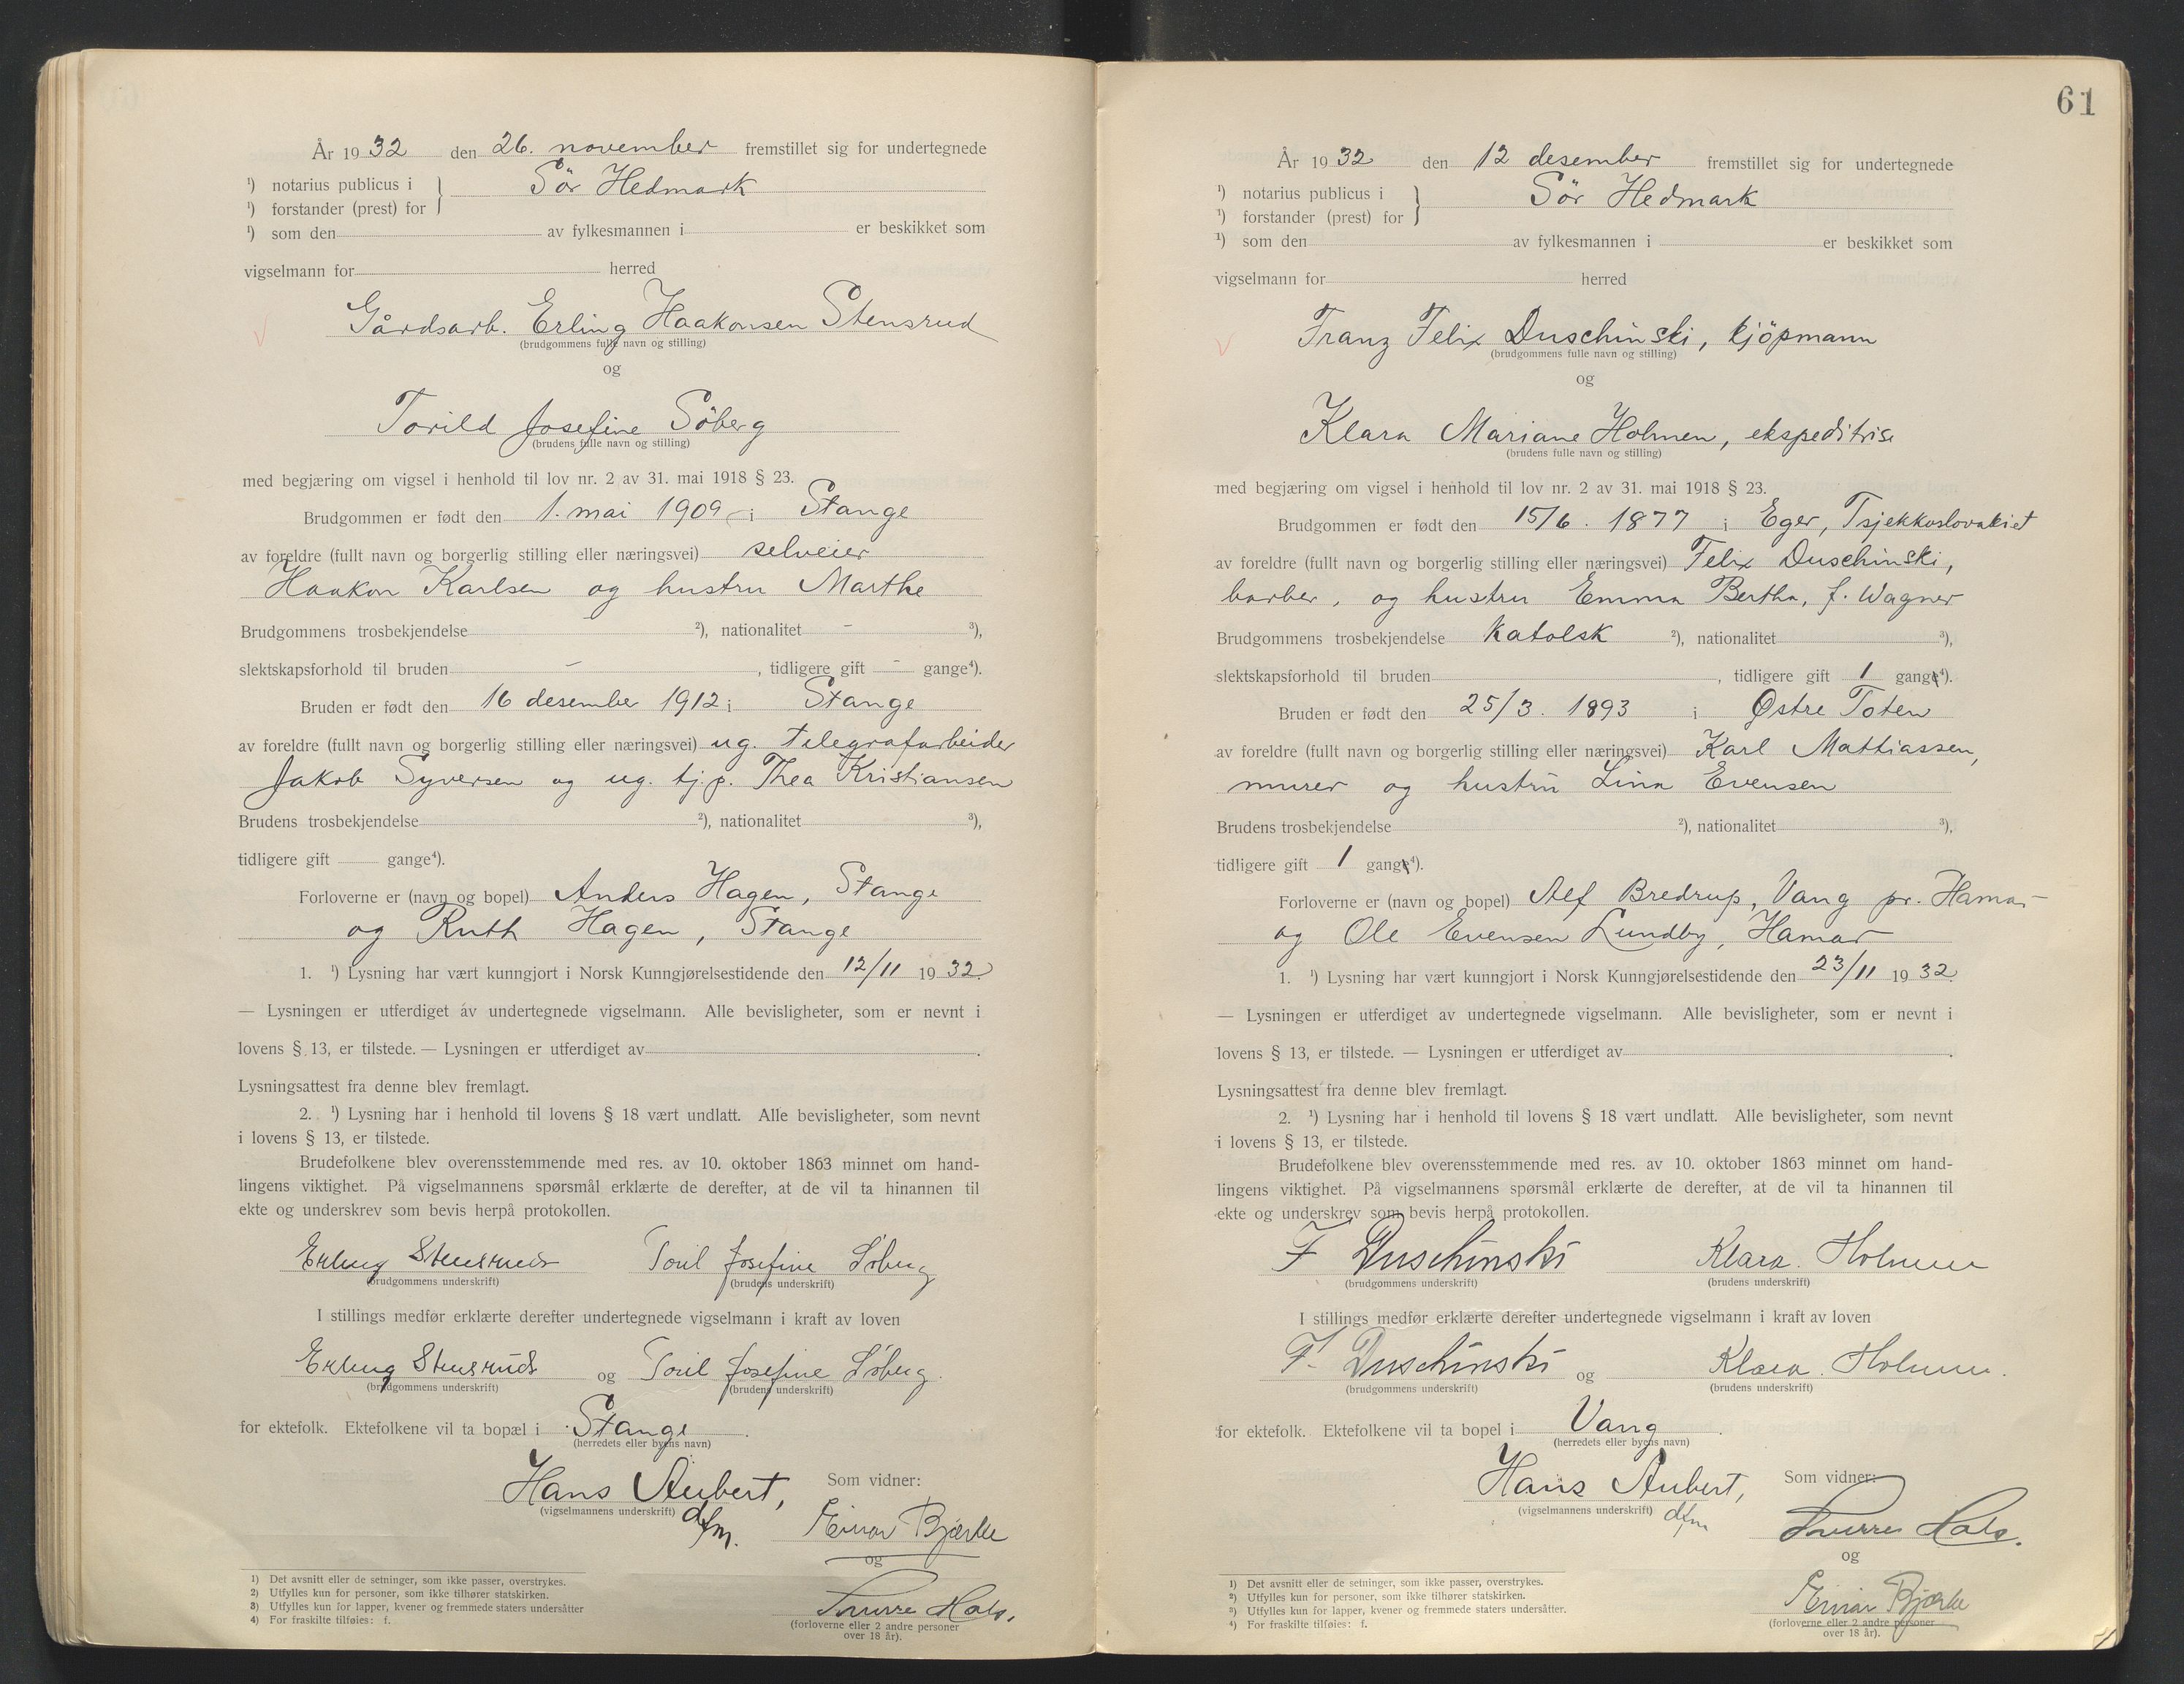 År 19 32 den 26. november fremstillet sig for undertegnede
¹) notarius publicus i } Sör Hedmark
¹) forstander (prest) for
¹) som den av fylkesmannen i er beskikket som
vigselmann for herred
Gårdsarb. Erling Haakonsen Stensrud
(brudgommens fulle navn og stilling)
og
Torild Josefine Söberg
(brudens fulle navn og stilling)
med begjæring om vigsel i henhold til lov nr. 2 av 31. mai 1918 § 23.
Brudgommen er født den 1. mai 1909 i Stange
av foreldre (fullt navn og borgerlig stilling eller næringsvei) selveier
Haakon Karlsen og hustru Marthe
Brudgommens trosbekjendelse - ²), nationalitet - ³),
slektskapsforhold til bruden - , tidligere gift - gange⁴).
Bruden er født den 16 desember 1912 i Stange
av foreldre (fullt navn og borgerlig stilling eller næringsvei) ug. telegrafarbeider
Jakob Syversen og ug. tj.p. Thea Kristiansen
Brudens trosbekjendelse ²), nationalitet ³),
tidligere gift gange⁴).
Forloverne er (navn og bopel) Anders Hagen, Stange
og Ruth Hagen, Stange
1. ¹) Lysning har vært kunngjort i Norsk Kunngjørelsestidende den 12/11 19 32
— Lysningen er utferdiget av undertegnede vigselmann. Alle bevisligheter, som er nevnt i
lovens § 13, er tilstede. — Lysningen er utferdiget av .
Lysningsattest fra denne blev fremlagt.
2. ¹) Lysning har i henhold til lovens § 18 vært undlatt. Alle bevisligheter, som nevnt
i lovens § 13, er tilstede.
Brudefolkene blev overensstemmende med res. av 10. oktober 1863 minnet om hand-
lingens viktighet. På vigselmannens spørsmål erklærte de derefter, at de vil ta hinannen til
ekte og underskrev som bevis herpå protokollen.
Erling Stensrud Toril Josefine Söberg
(brudgommens underskrift) (brudens underskrift)
I stillings medfør erklærte derefter undertegnede vigselmann i kraft av loven
Erling Stensrud og Toril Josefine Söberg.
(brudgommens underskrift) (brudens underskrift)
for ektefolk. Ektefolkene vil ta bopæl i Stange .
(herredets eller byens navn)
Hans Aubert, Som vidner:
(vigselmannens underskrift) dfm. Einar Bjærke
og
Snurre Hals.
(forloverne eller 2 andre personer
over 18 år).
1) Det avsnitt eller de setninger, som ikke passer, overstrykes.
2) Utfylles kun for personer, som ikke tilhører statskirken.
3) Utfylles kun for lapper, kvener og fremmede staters undersåtter
4) For fraskilte tilføies: f.
61
År 19 32 den 12 desember fremstillet sig for undertegnede
¹) notarius publicus i } Sör Hedmark
¹) forstander (prest) for
¹) som den av fylkesmannen i er beskikket som
vigselmann for herred
Franz Felix Duschinski, kjöpmann
(brudgommens fulle navn og stilling)
og
Klara Mariane Holmen, ekspeditrise
(brudens fulle navn og stilling)
med begjæring om vigsel i henhold til lov nr. 2 av 31. mai 1918 § 23.
Brudgommen er født den 15/6. 1877 i Eger, Tsjekkoslovakiet
av foreldre (fullt navn og borgerlig stilling eller næringsvei) Felix Duschinski,
barber, og hustru Emma Bertha, f. Wagner
Brudgommens trosbekjendelse katolsk ²), nationalitet ³),
slektskapsforhold til bruden , tidligere gift 1 gange⁴).
Bruden er født den 25/3. 1893 i Østre Toten
av foreldre (fullt navn og borgerlig stilling eller næringsvei) Karl Mattiassen,
murer og hustru Lina Evensen
Brudens trosbekjendelse ²), nationalitet ³),
tidligere gift 1 gange⁴).
Forloverne er (navn og bopel) Alf Bredrup, Vang pr. Hamar
og Ole Evensen Lundby, Hamar
1. ¹) Lysning har vært kunngjort i Norsk Kunngjørelsestidende den 23/11 19 32.
— Lysningen er utferdiget av undertegnede vigselmann. Alle bevisligheter, som er nevnt i
lovens § 13, er tilstede. — Lysningen er utferdiget av .
Lysningsattest fra denne blev fremlagt.
2. ¹) Lysning har i henhold til lovens § 18 vært undlatt. Alle bevisligheter, som nevnt
i lovens § 13, er tilstede.
Brudefolkene blev overensstemmende med res. av 10. oktober 1863 minnet om hand-
lingens viktighet. På vigselmannens spørsmål erklærte de derefter, at de vil ta hinannen til
ekte og underskrev som bevis herpå protokollen.
F Duschinski Klara. Holmen
(brudgommens underskrift) (brudens underskrift)
I stillings medfør erklærte derefter undertegnede vigselmann i kraft av loven
F. Duschinski og Klara. Holmen.
(brudgommens underskrift) (brudens underskrift)
for ektefolk. Ektefolkene vil ta bopel i Vang .
(herredets eller byens navn)
Hans Aubert, Som vidner:
(vigselmannens underskrift) dfm Snurre Hals.
og
Einar Bjærke
(forloverne eller 2 andre personer
over 18 år).
1) Det avsnitt eller de setninger, som ikke passer, overstrykes.
2) Utfylles kun for personer, som ikke tilhører statskirken.
3) Utfylles kun for lapper, kvener og fremmede staters undersåtter.
4) For fraskilte tilføies: f.